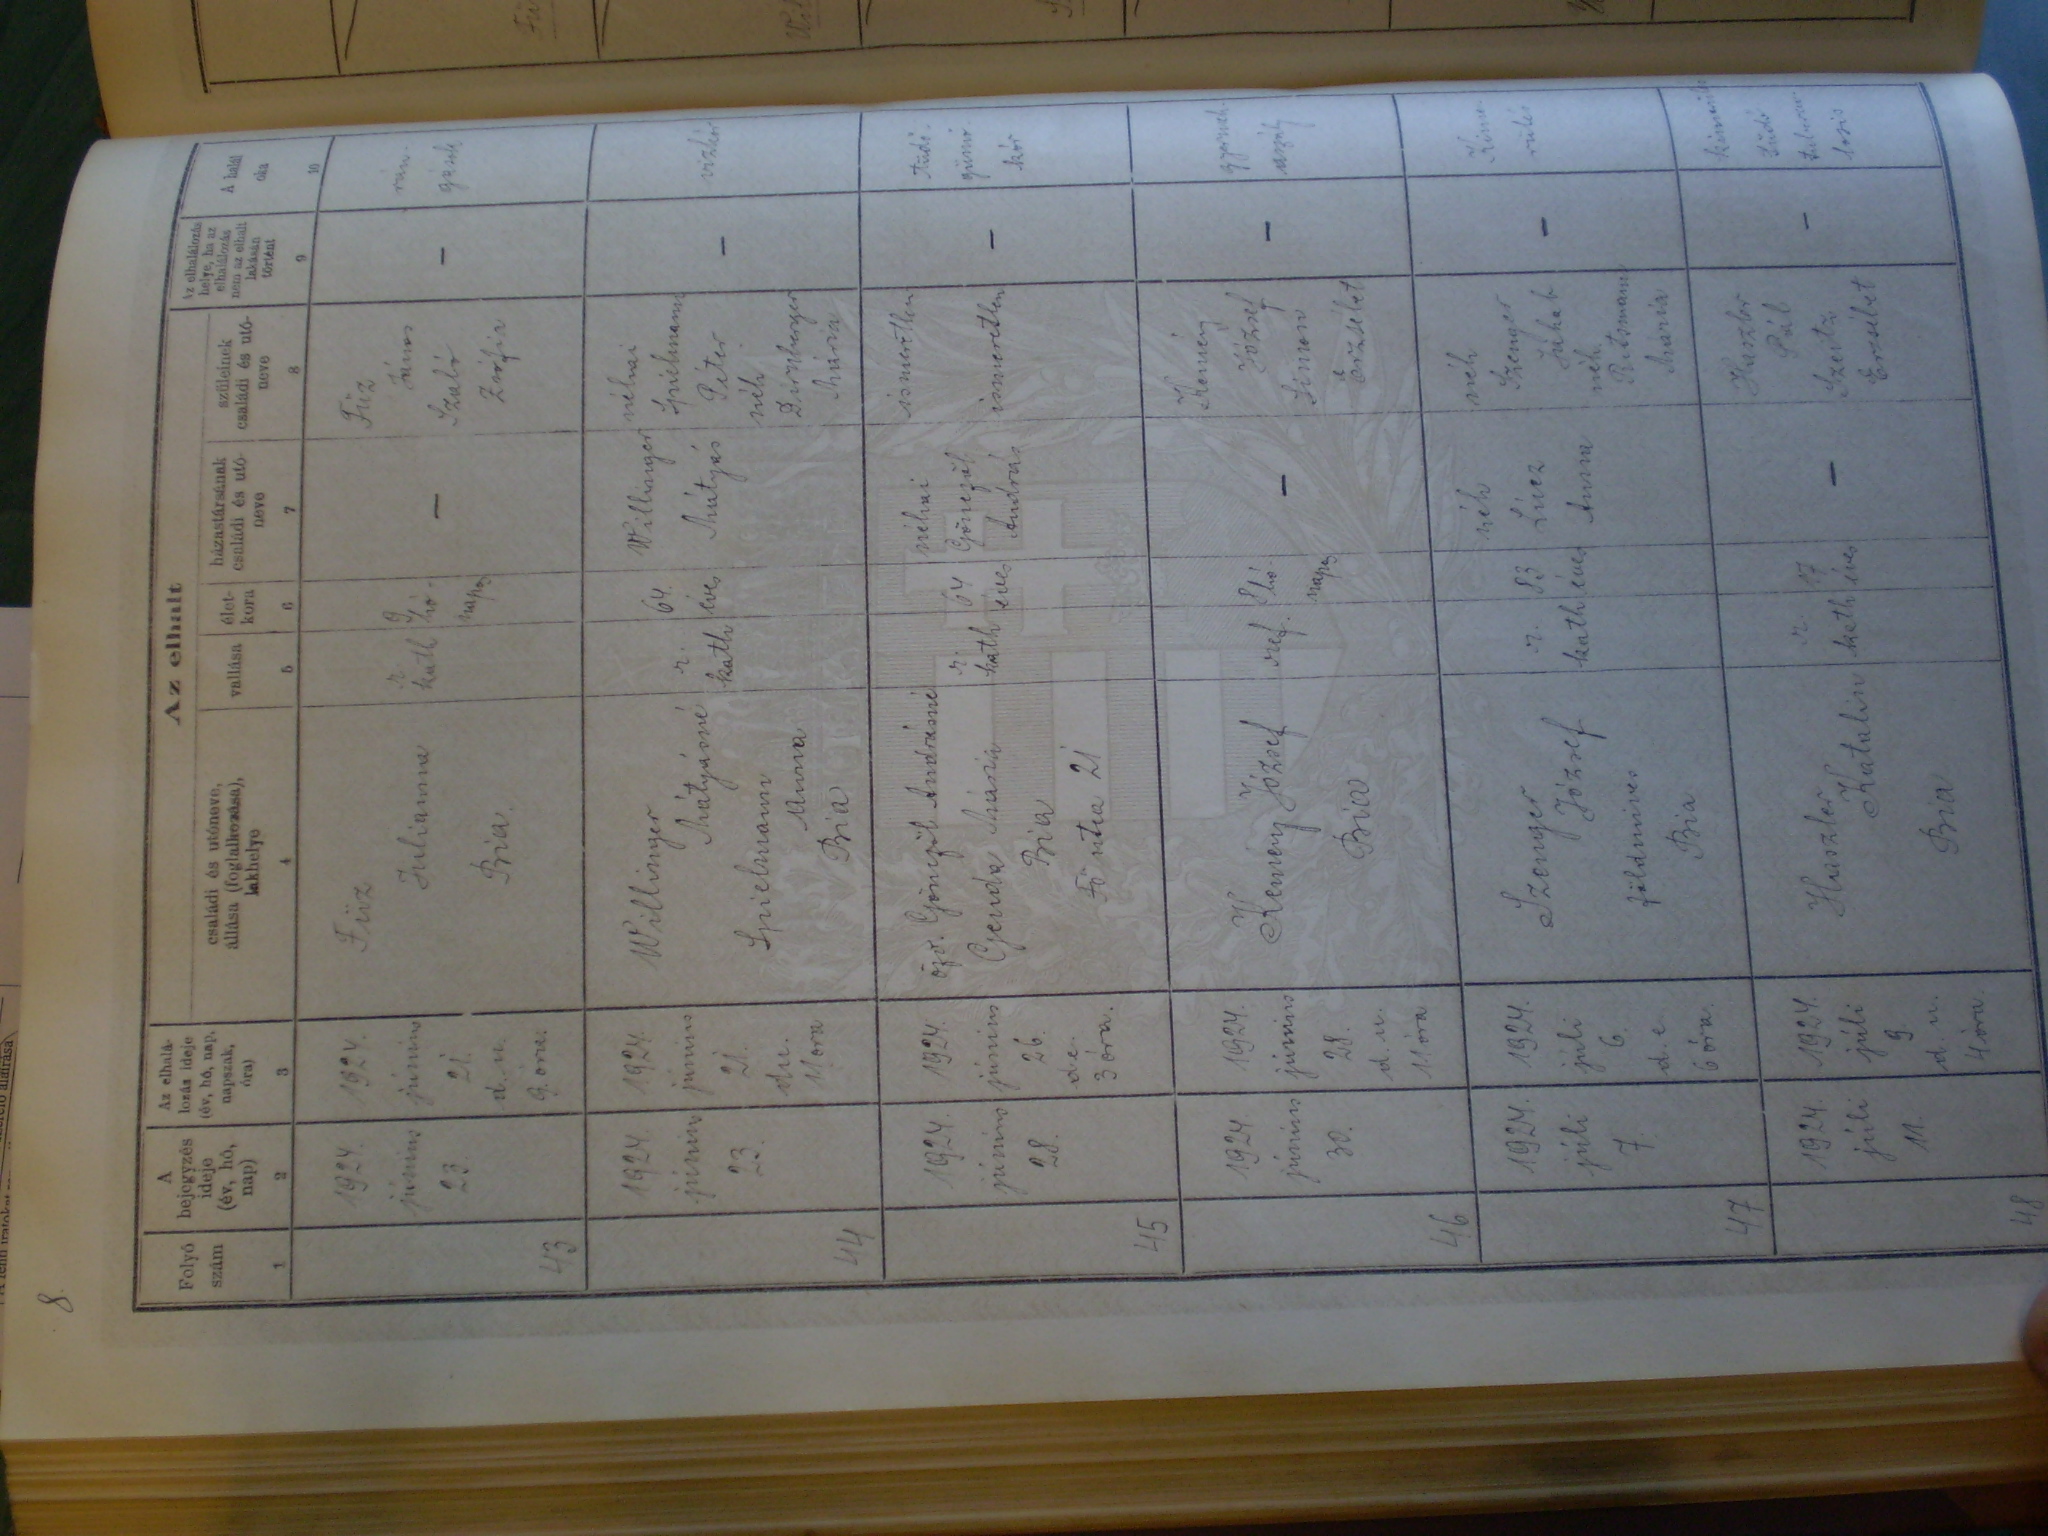 8.
Az elhalt
Folyó
szám
A
bejegyzés
ideje
(év, hó,
nap)
Az elhalá-
lozás ideje
(év, hó, nap,
napszak,
óra)
családi és utóneve,
állása (foglalkozása),
lakhelye
vallása
élet-
kora
házastársának
családi és utó-
neve
szüleinek
családi és utó-
neve
Az elhalálozás
helye, ha az
elhalálozás
nem az elhalt
lakásán
történt
A halál
oka
1
2
3
4
5
6
7
8
9
10
43
1924.
június
23.
1924.
június
21.
d. u.
9. óra.
Füz
Julianna
Bia.
r.
kath
9
hó-
napos
—
Füz
János
Szabó
Zsófia
—
rán-
gások
44
1924.
június
23.
1924.
június
21.
du.
11. óra
Willinger
Mátyásné
Spielmann
Anna
Bia
r.
kath
64.
éves
Willinger
Mátyás
néhai
Spielmann
Péter
néh.
Mária
—
vízkór
45
1924.
június
28.
1924.
június
26.
d.e.
3 óra.
özv. Göngzöl Andrásné
Mária
Bia
Fő utca 21
r.
kath
64
éves
néhai
András
ismeretlen
ismeretlen
—
tüdő-
gümő-
kór
46
1924
június
30.
1924.
június
28.
d. u.
11 óra
Kemény
József
Bia
ref.
hó
napos
—
Kemény
József
Simon
Erzsébet
—
gyermek-
aszály
47
1924.
júli
7.
1924.
júli
6
d. e.
6 óra.
Szenger
József
földmíves
Bia
r.
kath
83
éves
néh
Anna
néh
Szenger
Jakab
néh.
Mária
—
48
1924.
júli
11.
1924.
júli
9.
d. u.
4 óra.
Huszler
Katalin
Bia
r.
kath
17
éves
—
Huszler
Pál
Erzsébet
—
tüdő